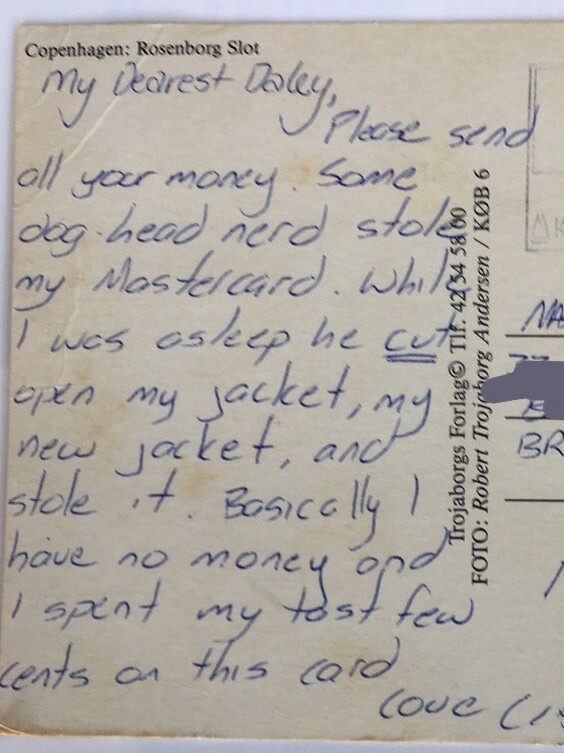 Copenhagen: Rosenborg Slot
My Dearest Daley,
Please send
all your money. Some
dog-head nerd stole
my Mastercard. While
I was asleep he cut
open my jacket, my
new jacket, and
stole it. Basically I
have no money and
I spent my last few
cents on this card
Love
Trojaborgs Forlag© Tlf. 42 34 58 60
FOTO: Robert Trojaborg Andersen / KØB 6
NA
BR